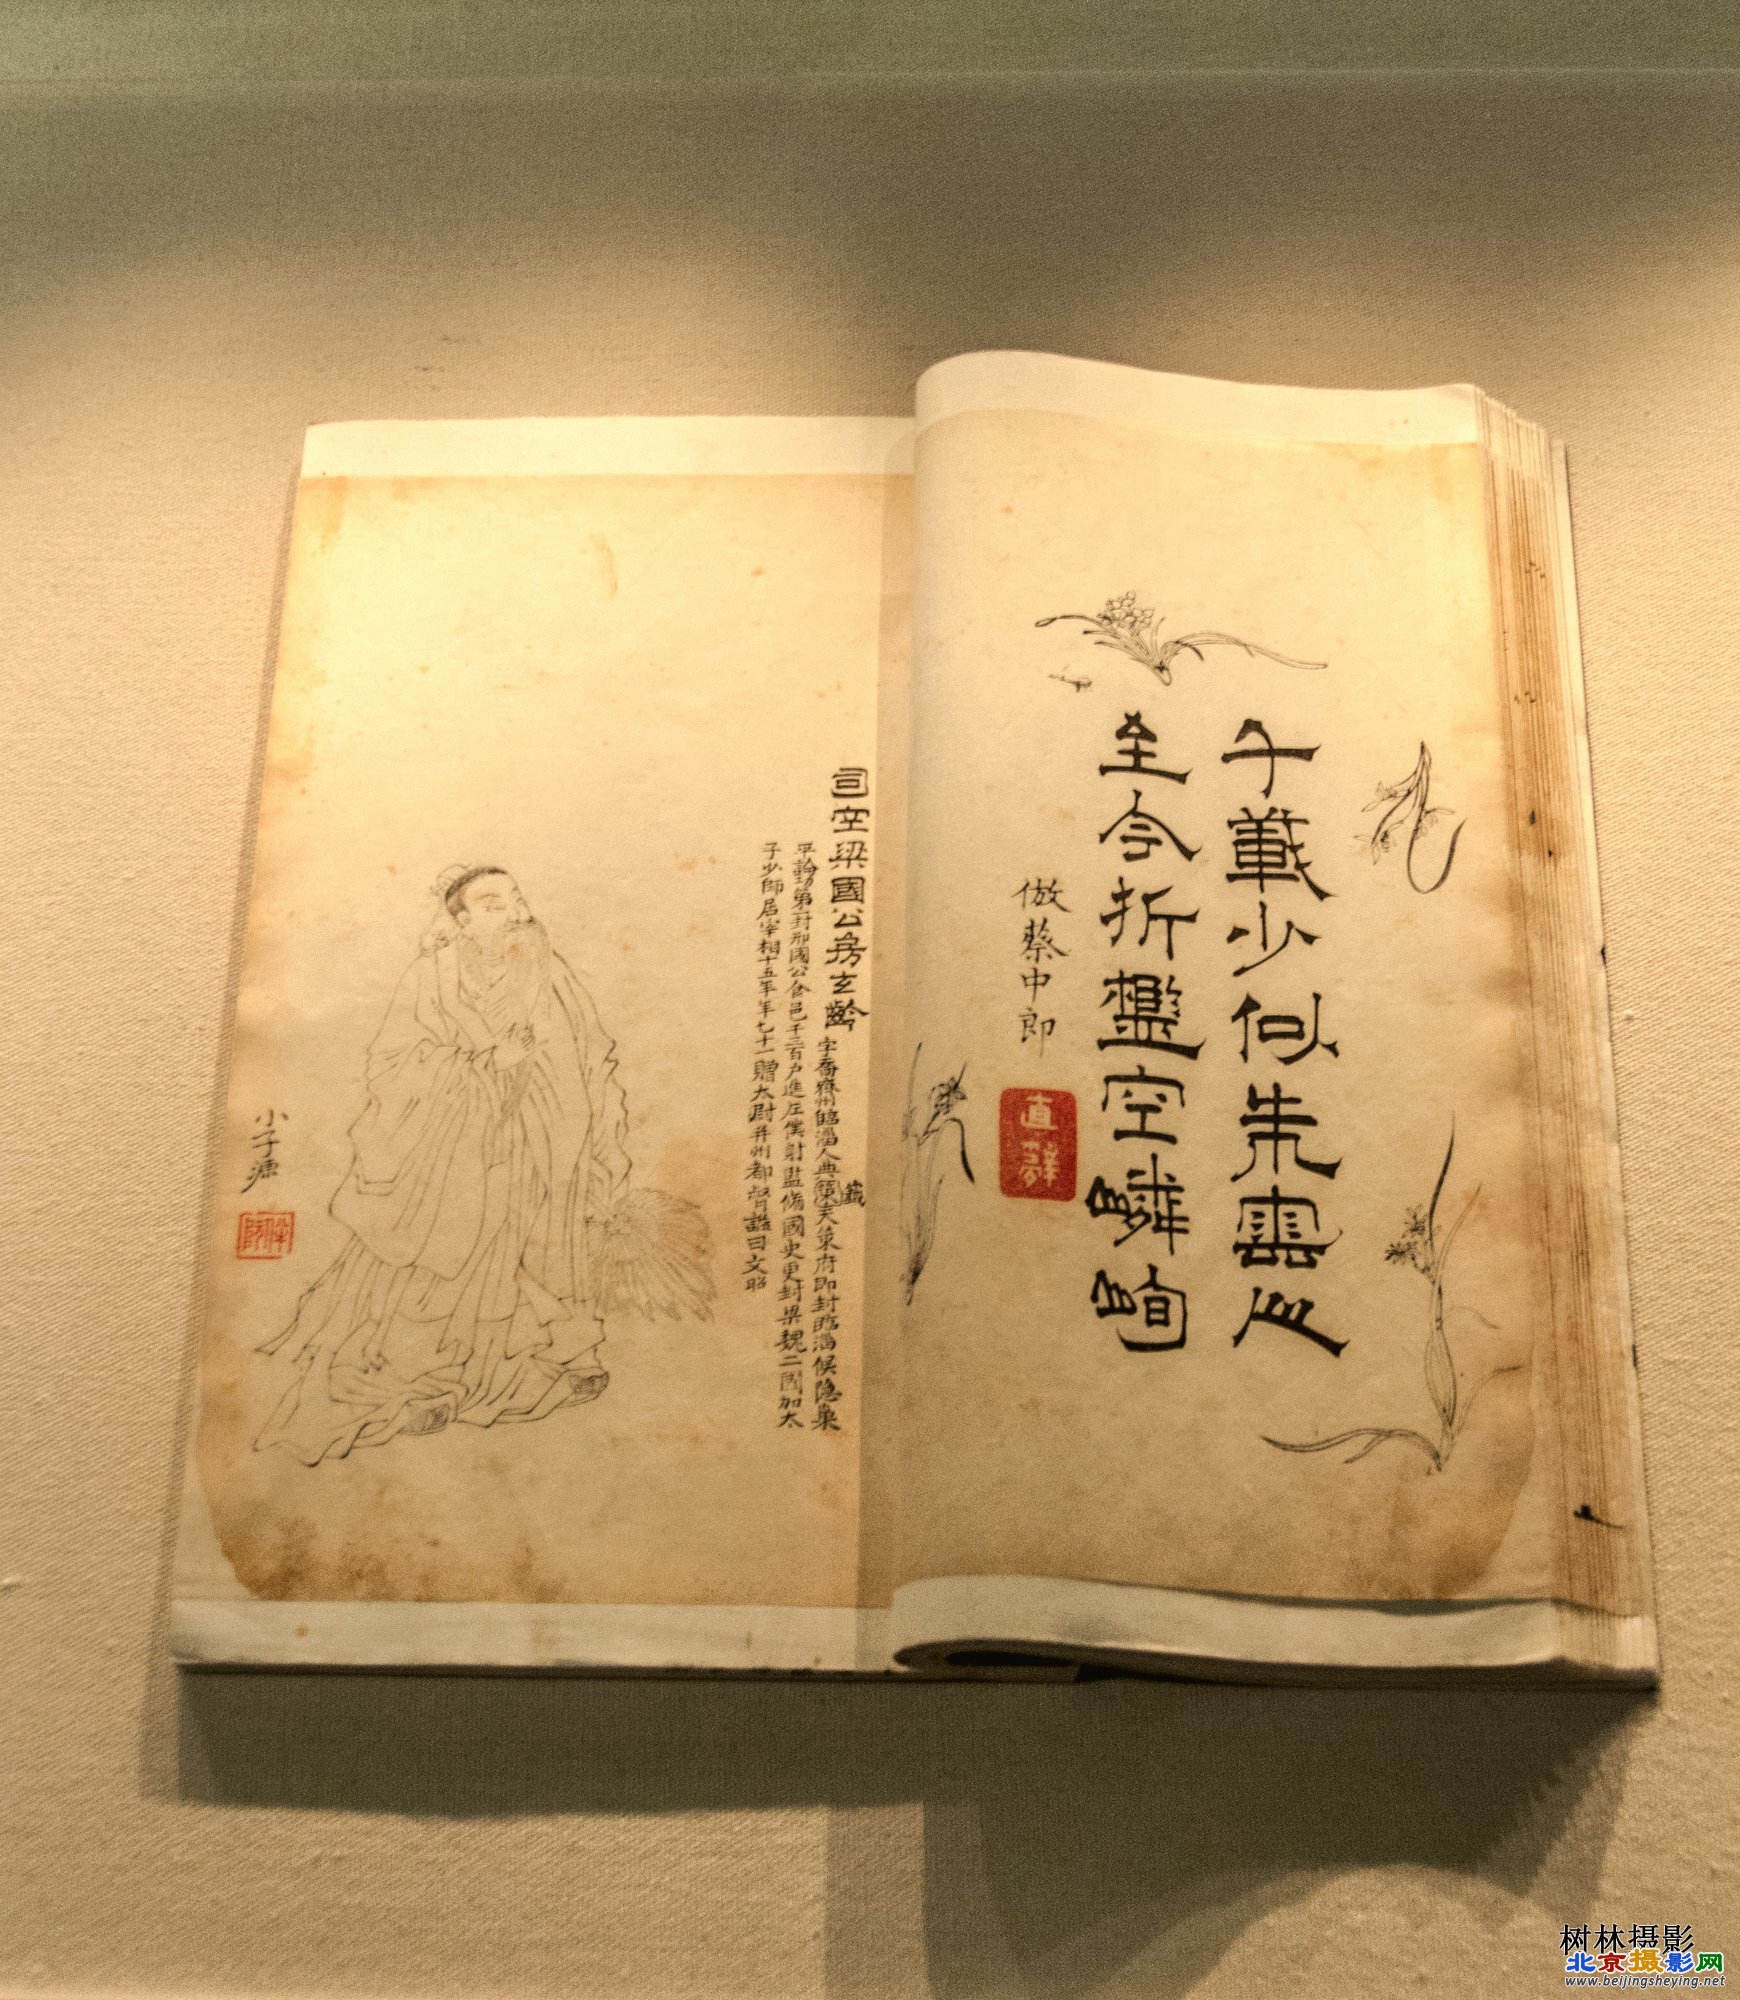 千載少似朱雲心
至今折檻空嶙峋
倣蔡中郎
司空梁國公房玄齡
字喬齊州臨淄人典籖天策府即封臨淄侯隐巢
平論功第一封邢國公食邑千三百户進左僕射監脩國史更封梁魏二國加太
子少師居宰相十五年年七十一贈太尉并州都督謚曰文昭
小子源
树林摄影
北京摄影网
www.beijingsheying.net